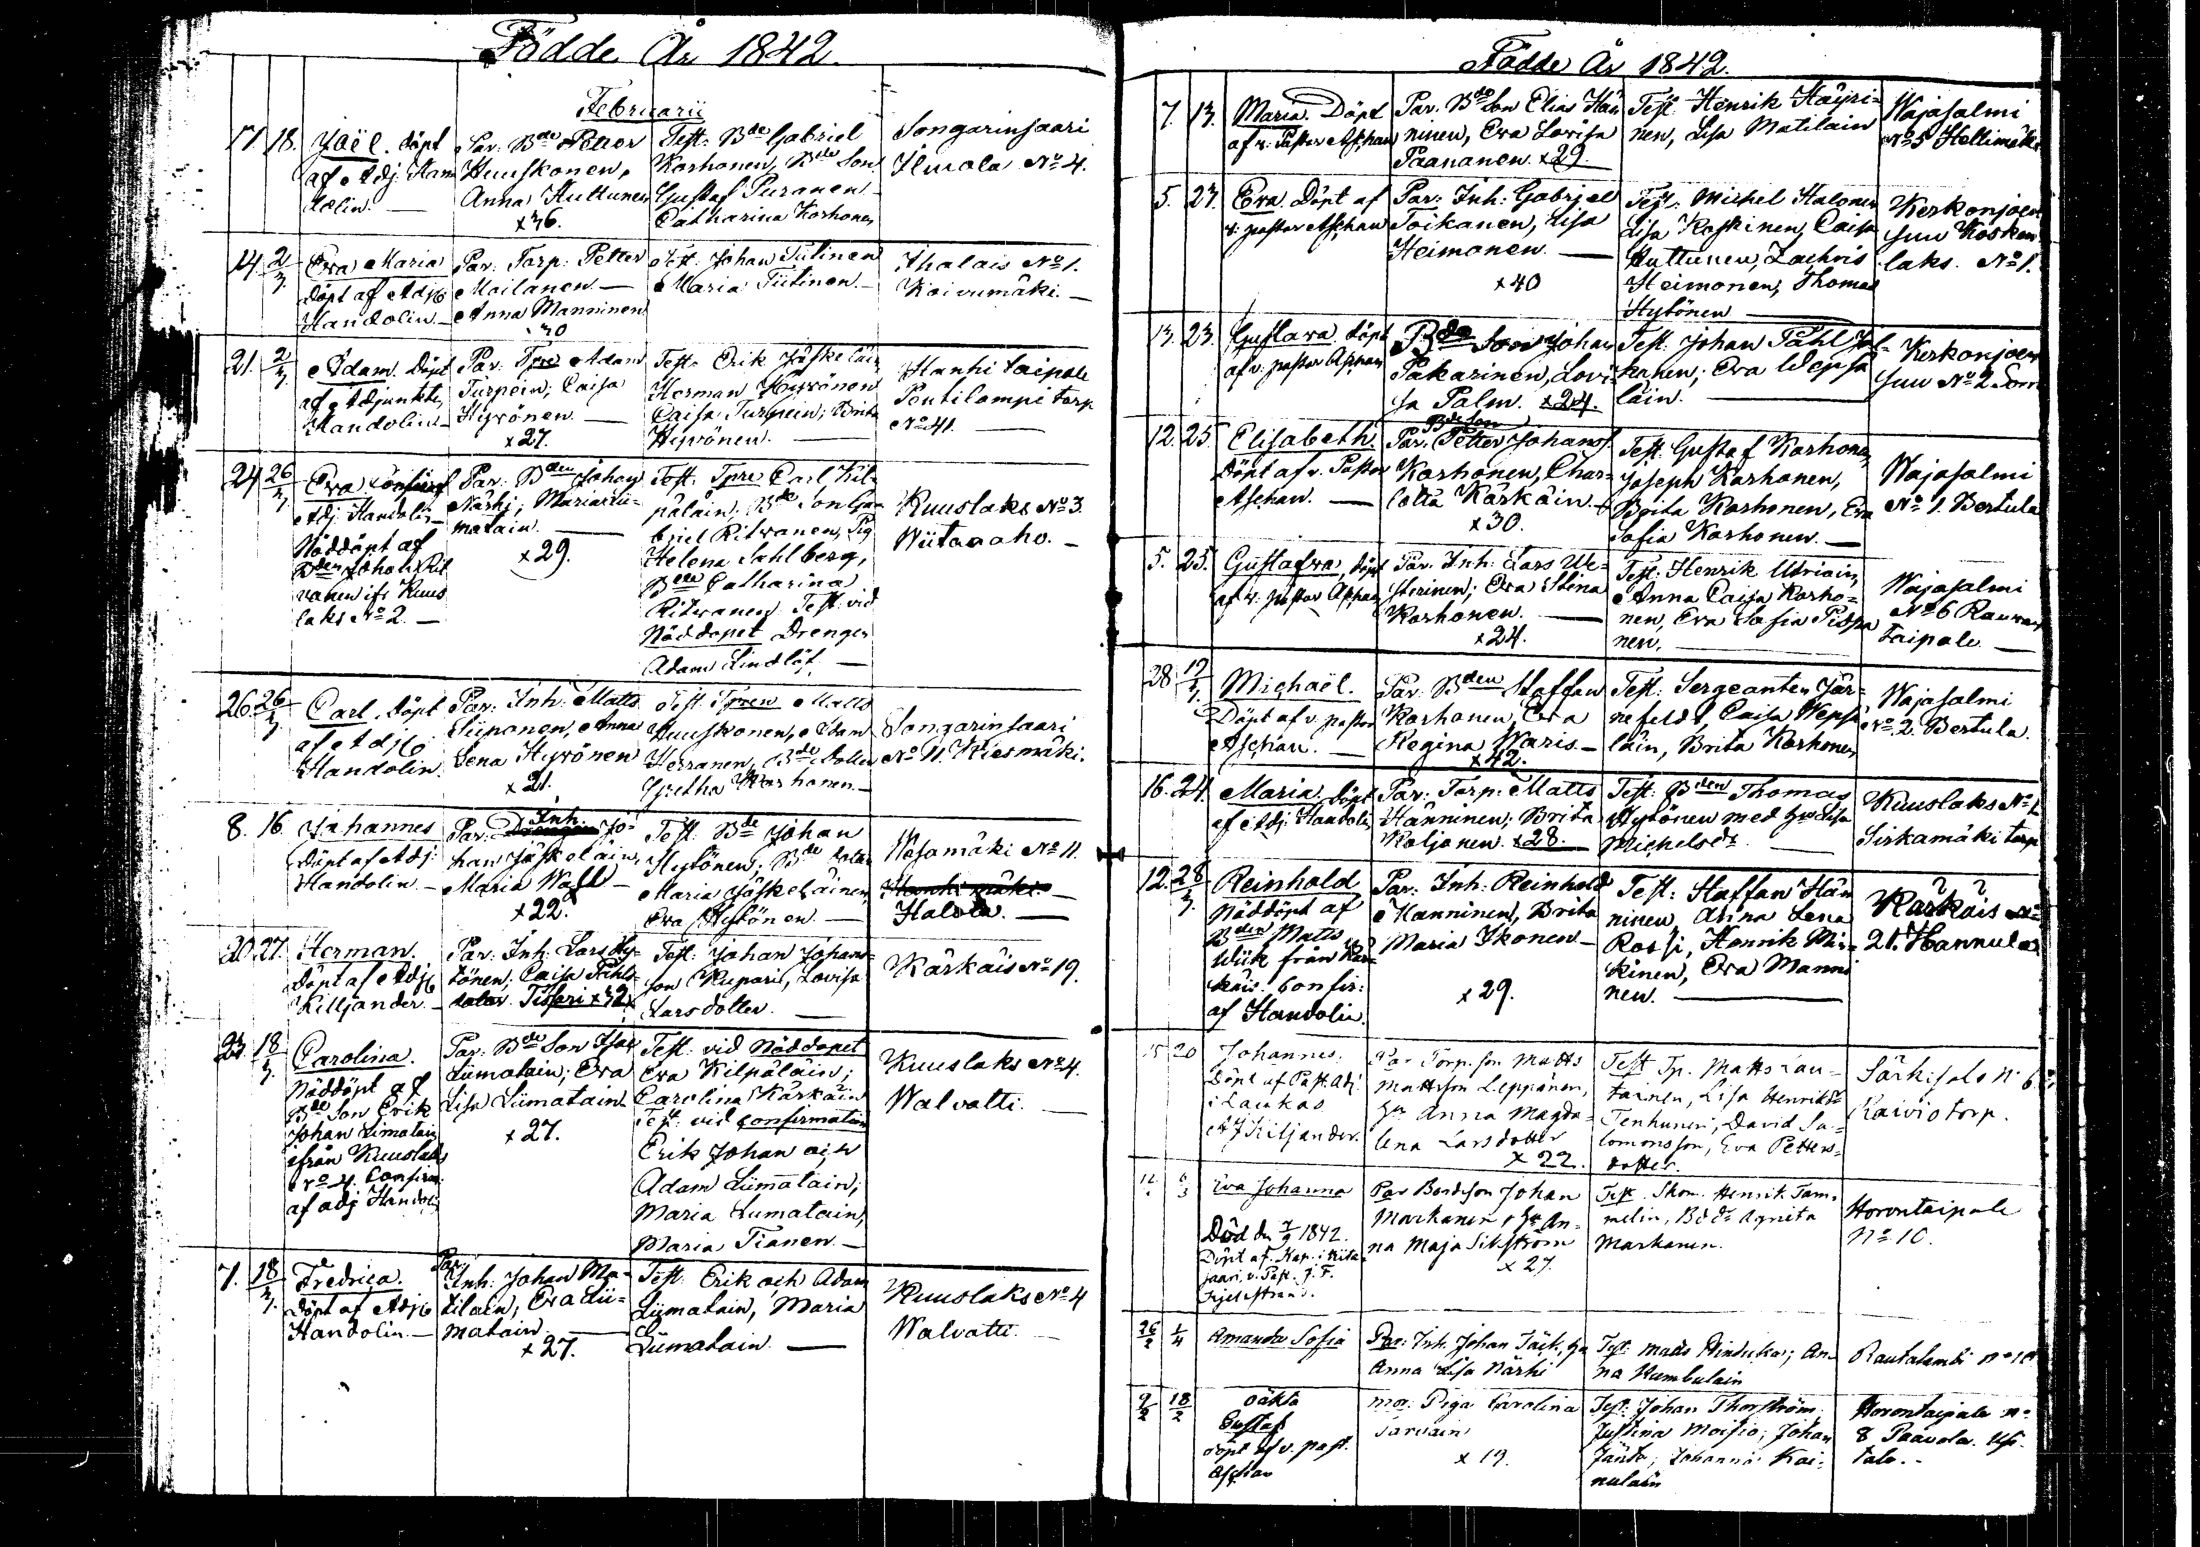 Födde År 1842.
Februarii
17. 18. Joël. döpt
af Adj. Han
dolin. —
Par: Bde Petter
Huuskonen,
Anna Huttunen
x36.
Test: Bde Gabriel
Korhonen, Bde Son
Gustaf Puranen
Catharina Korhonen
Songarinsaari
Ilmola No 4.
14. 2/3. Eva Maria
döpt af Adj
Handolin —
Par: Torp: Petter
Moilanen —
Anna Manninen
Test: Johan Tiitinen
Maria Tiitinen —
Ihalais No 1.
Koivumäki. —
21. 2/3. Adam. döpt
af Adjunkten
Handolin —
Par: Tpre Adam
Turpein, Caisa
Hyvönen —
x27.
Test: Erik Jäskeläin,
Herman Hyvönen
Caisa Turpein; Brita
Hyvönen. —
Hanhitaipale
Pentilampi torp
No 41. —
24 26/3 Eva
Adj. Handolin —
Nöddöpt af
Bden Johan Rit
vanen ifr. Kuus
laks No 2. —
Par: Bden Johan
Närhi, Maria Lii-
matain. —
x29.
Test: Tpre Carl Kil-
päläin. Bde Son Ga-
briel Ritvanen, Pig
Helena Sahlberg,
Catharina
Ritvanen Test. vid
Nöddopet Drengen
Adam Lindlöf. —
Kuuslaks No 3.
Wiitaaho. —
26 26/3 Carl. döpt
af Adj
Handolin.
Par: Inh: Matts
Siiponen, Anna
Lena Hyvönen
x21.
Test: Tpren Matts
Huuskonen, Adam
Herranen, Bde dotter
Gretha Korhonen —
Songarinsaari
No 11. Kiesmäki.
8. 16. Johannes
Döpt af Adj:
Handolin —
Inh.
Par: Drengen Jo-
han Jäskeläin,
Maria Wahl —
x22.
Test. Bde Johan
Hytönen; Bde dotter
Maria Jäskeläinen,
Eva Hytönen. —
Wesamäki No 11.
Hanhimäki
Halola. —
20. 27. Herman.
Döpt af Adj
Killjander. —
Par: Inh: Lars Hy-
tönen; Caisa Påhls-
dotter
Test: Johan Johans-
son Kupari, Lovisa
Larsdotter. —
Kärkäis No 19.
23. 18/3. Carolina.
Nöddöpt af
Bde Son Erik
Johan Limatain
ifrån Kuuslaks
No 4. Confirm.
af adj Handolin
Par: Bde Son Isak
Liimatain; Eva
Lisa Liimatain
x27.
Test: vid Nöddopet
Eva Kilpäläin;
Carolina Kärkäin
Test: vid Confirmation
Erik Johan och
Adam Liimatain;
Maria Liimatain,
Maria Tianen —
Kuuslaks No 4.
Walvatti. —
7. 18/3. Fredrica.
döpt af Adj
Handolin —
Par:
Inh: Johan Ma-
tilain, Eva Lii-
matain —
x27.
Test: Erik och Adam
Liimatain, Maria
Liimatain. —
Kuuslaks No 4
Walvatti. —
Födde År 1842.
7. 13. Maria. Döpt
af v. Pastor Aschan
Par. Bde Son Elias Hän
ninen, Eva Lovisa
Paananen. x29.
Test: Henrik Häyri-
nen, Lisa Matilain
Wajasalmi
No 5 Hollimäki
5. 27. Eva. Döpt af
v. pastor Aschan
Par: Inh: Gabriel
Toikanen, Lisa
Heimonen. —
x40
Test: Michel Halonen
Lisa Koskinen, Caisa
Huttunen, Zachris
Heimonen, Thomas
Hytönen —
Kerkonjoen
suu Kosken
laks. No 1.
13. 23. Gustava döpt
af v. pastor Aschan
Bde Son Johan
Pakarinen, Lovi-
sa Palm. x24.
Test: Johan Påhl
hanen; Eva Wepsä
läin. —
Kerkonjoen
suu No 2
12. 25. Elisabeth.
Döpt af v. Pastor
Aschan. —
Bde Son
Par: Petter Johans.
Korhonen, Char-
lotta Kärkäin. —
x30.
Test. Gustaf Korhonen,
Joseph Korhonen,
Brita Korhonen, Eva
Sofia Korhonen. —
Wajasalmi
No 1. Bertula
5. 25. Gustafva, döpt
af v. pastor Aschan
Par: Inh: Lars We-
sterinen; Eva Stina
Korhonen. —
x24.
Test: Henrik Utriain,
Anna Caisa Korho-
nen, Eva Sofia Pispa
nen. —
Wajasalmi
No 6 Rauwan
taipale. —
28 12/3. Michaël.
Döpt af v. pastor
Aschan. —
Par: Bden Staffan
Korhonen, Eva
Regina Waris. —
x42.
Test: Sergeanten Jär-
nefeldt, Caisa Wepsä
läin, Brita Korhonen
Wajasalmi
No 2. Bertula.
16. 24. Maria. döpt
af Adj. Handolin
Par: Torp: Matts
Hänninen; Brita
Koljonen. x28.
Test: Bden Thomas
Hytönen med hu Lisa
Michelsdr —
Kuuslaks No 1.
Sirkamäki torp
12. 28/3. Reinhold
Nöddöpt af
Bden Mats
Wiik från Kär-
käis. Confir:
af Handolin.
Par: Inh: Reinhold
Manninen, Brita
Maria Ikonen —
x29.
Test: Staffan Hän
ninen, Anna Lena
Rossi, Henrik Mi-
kinen, Eva Manni
nen. —
Kärkäis No
21. Hannula
15 20 Johannes.
Döpt af Past. Adj.
i Laukas
A J Kiljander.
Par Torp. son Matts
Mattsson Leppänen,
hu Anna Magda-
lena Larsdotter
x 22.
Test Tp. Matts Lau-
tainen, Lisa Henriksdr
Tenhunen, David Sa-
lomonsson, Eva Petters-
dotter.
Särkisalo No 6
Raivio torp.
12. 6/3 Eva Johanna
Död dn 7/9 1842.
Döpt af Kap. i Kita-
jaari, v. Past. J. F.
Par Bondeson Johan
Markanen & hu An-
na Maja Silfström
x 27
Test. Skom. Henrik Tam-
melin, Bd dr Agneta
Markanen.
Horontaipale
No 10.
26/2 1/4 Amanda Sofia
Par: Inh. Johan Jäck, hu
Anna Lisa Närhi
Test: Matts Hindrikss; An-
na Kumbulain
Rautalambi No 10
9/2 18/2 oäkta
Gustaf
döpt af v. past.
Aschan
Mor: Piga Carolina
Sarvain
x 19.
Test: Johan Thorström
Justina Moisio, Johan
Jäntä; Johanna Kai-
nulain
Horontaipale No
8 Paavola.
talo. -